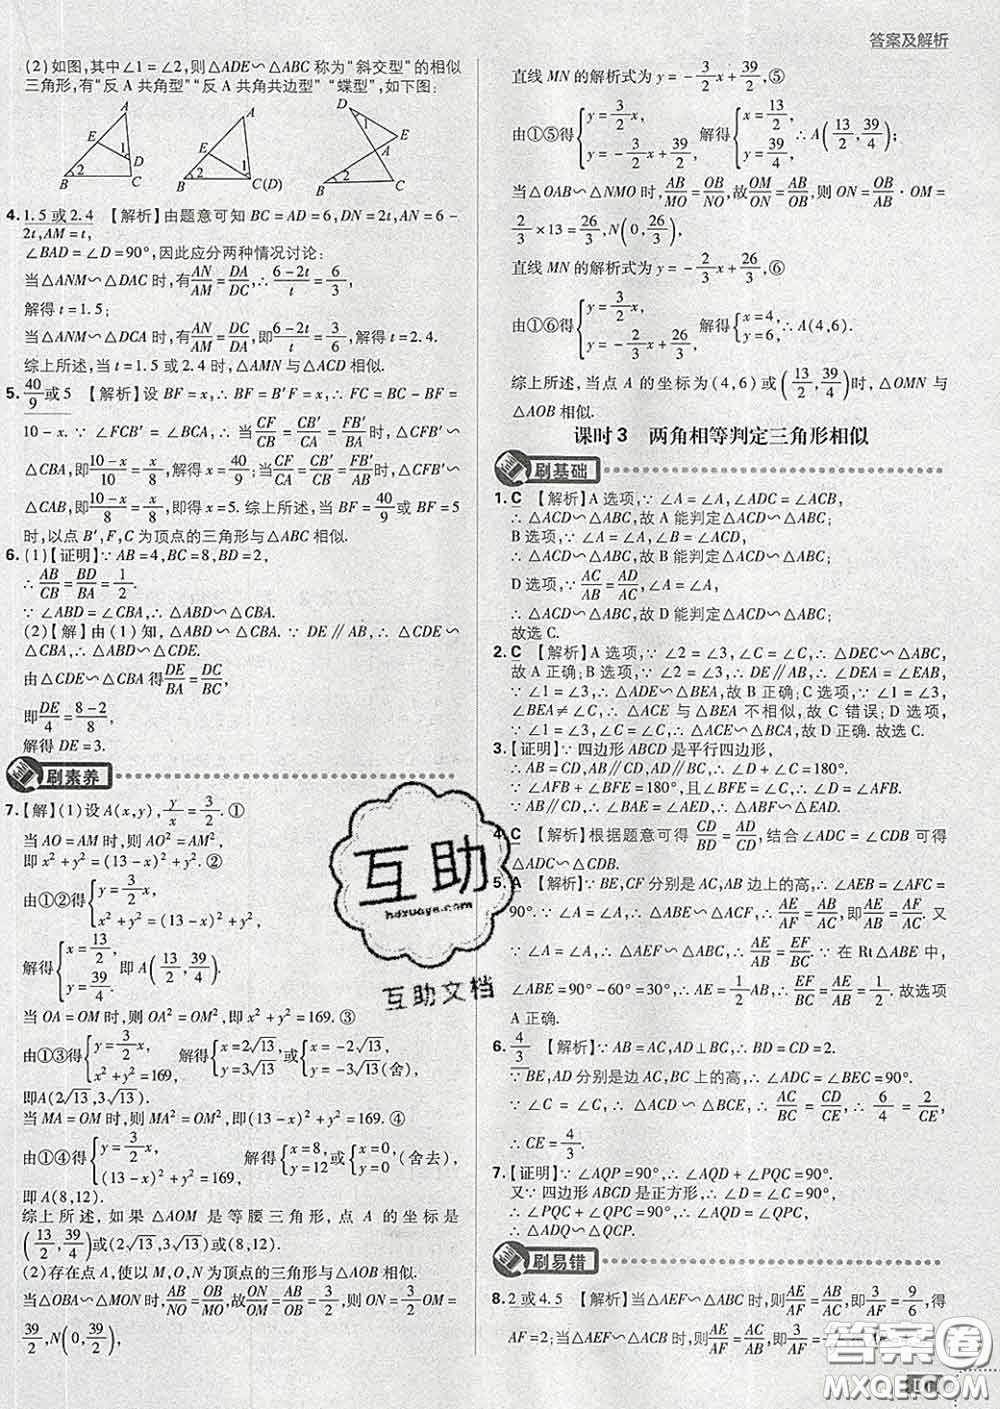 答案及解析
(2)如图,其中∠1=∠2,则△ADE∽△ABC称为“斜交型”的相似
三角形,有“反A共角型”“反A共角共边型”“蝶型”,如下图:
A E 1 D 2 B C
A E 1 2 B C(D)
D 1 E A 2 B C
4. 1.5或2.4 【解析】由题意可知BC=AD=6,DN=2t,AN=6-
2t,AM=t,
∠BAD=∠D=90°,因此应分两种情况讨论:
当△ANM∽△DAC时,有AN/AM=DA/DC,∴(6-2t)/t=6/3,
解得t=1.5;
当△ANM∽△DCA时,有AN/AM=DC/DA,即(6-2t)/t=3/6,解得t=2.4.
综上所述,当t=1.5或2.4时,△AMN与△ACD相似.
5. 40/9或5 【解析】设BF=x,∴BF=B′F=x,∴FC=BC-BF=
10-x.∵∠FCB′=∠BCA,∴当CF/CB=CB′/CA=FB′/BA时,△CFB′∽
△CBA,即(10-x)/8=x/6,解得x=40/9;当CF/CA=CB′/CB=FB′/BA时,△CFB′∽
△CAB,即(10-x)/8=x/8,即x=5,解得x=5.故当BF=40/9或BF=5
时,以点B′,F,C为顶点的三角形与△ABC相似.
6. (1)【证明】∵AB=4,BC=8,BD=2,
∴AB/CB=BD/BA=1/2.
∵∠ABD=∠CBA,∴△ABD∽△CBA.
(2)【解】由(1)知,△ABD∽△CBA.∵DE∥AB,∴△CDE∽
△CBA,∴△ABD∽△CDE.
由△CDE∽△CBA得DE/BA=DC/BC,
即DE/4=(8-2)/8,
解得DE=3.
刷素养
7. 【解】(1)设A(x,y),y/x=3/2.①
当AO=AM时,则AO²=AM²,
即x²+y²=(13-x)²+y².②
由①②得{y=3/2x,
x²+y²=(13-x)²+y²,
解得{x=13/2, y=39/4,即A(13/2,39/4).
当OA=OM时,则OA²=OM²,即x²+y²=169.③
由①③得{y=3/2x, x²+y²=169,解得{x=2√13, y=3√13,或{x=-2√13, y=-3√13(舍),
即A(2√13,3√13).
当MA=OM时,则MA²=OM²,即(13-x)²+y²=169.④
由①④得{y=3/2x, (13-x)²+y²=169,解得{x=8, y=12或{x=0, y=0,(舍去),
即A(8,12).
综上所述,如果△AOM是等腰三角形,点A的坐标是
(13/2,39/4)或(2√13,3√13)或(8,12).
(2)存在点A,使以M,O,N为顶点的三角形与△AOB相似.
当△OBA∽△MON时,AB/NO=OB/MO,故OM/ON=OB/AB=3/2,则ON=2/3OM=
39/2,N(0,39/2),
直线MN的解析式为y=-3/2x+39/2,⑤
由①⑤得{y=3/2x, y=-3/2x+39/2,解得{x=13/2, y=39/4,∴A(13/2,39/4);
当△OAB∽△NMO时,AB/MO=OB/NO,故OM/ON=AB/OB,则ON=OB/AB·OM=
2/3×13=26/3,N(0,26/3),
直线MN的解析式为y=-2/3x+26/3,⑥
由①⑥得{y=3/2x, y=-2/3x+26/3,解得{x=4, y=6,∴A(4,6).
综上所述,当点A的坐标为(4,6)或(13/2,39/4)时,△OMN与
△AOB相似.
课时3 两角相等判定三角形相似
刷基础
1. C 【解析】A选项,∵∠A=∠A,∠ADC=∠ACB,
∴△ADC∽△ABC,故A能判定△ADC∽△ABC;
B选项,∵∠A=∠A,∠ACD=∠B,
∴△ADC∽△ABC,故B能判定△ADC∽△ABC;
D选项,∵AC/AB=AD/AC,∠A=∠A,
∴△ADC∽△ABC,故D能判定△ADC∽△ABC;
故选C.
2. C 【解析】A选项,∵∠2=∠3,∠C=∠C,∴△DEC∽△ABC,
故A正确;B选项,∵∠2=∠3,∴DE∥AB,∴∠DEA=∠EAB,
∵∠1=∠3,∴△ADE∽△BEA,故B正确;C选项,∵∠1=∠3,
∠BEA≠∠C,∴△ACE与△ABE不相似,故C错误;D选项,
∵∠1=∠2,∠C=∠C,∴△ACE∽△BCA,故D正确.故选C.
3. 【证明】∵四边形ABCD是平行四边形,
∴AB=CD,AB∥CD,AD∥BC,∴∠D+∠C=180°.
∵∠AFB+∠BFE=180°,且∠BFE=∠C,∴∠AFB=∠D.
∵AB∥CD,∴∠BAE=∠AED,∴△ABF∽△EAD.
4. C 【解析】根据题意可得CD/BD=AD/CD,结合∠ADC=∠CDB可得
△ADC∽△CDB.
5. A 【解析】∵BE,CF分别是AC,AB边上的高,∴∠AEB=∠AFC=
90°.∵∠A=∠A,∴△ABE∽△ACF,∴AE/AF=AB/AC,即AE/AB=AF/AC.又
∵∠A=∠A,∴△AEF∽△ABC,∴AE/AB=EF/BC.∵在Rt△ABE中,
∠ABE=90°-60°=30°,∴AE=1/2AB,∴EF/BC=AE/AB=1/2.故选项
A正确.
6. 4/3 【解析】∵AB=AC,AD⊥BC,∴BD=CD=2.
∵BE,AD分别是边AC,BC上的高,∴∠ADC=∠BEC=90°.
∵∠C=∠C,∴△ACD∽△BCE,∴AC/BC=CD/CE,∴6/4=2/CE,
∴CE=4/3.
7. 【证明】∵∠AQP=90°,∴∠AQD+∠PQC=90°.
又∵四边形ABCD是正方形,∴∠C=∠D=90°,
∴∠PQC+∠QPC=90°,∴∠AQD=∠QPC,
∴△ADQ∽△QCP.
刷易错
8. 2或4.5 【解析】当△AEF∽△ABC时,则AE/AB=AF/AC,即3/AF=9/6,得
AF=2;当△AEF∽△ACB时,则AE/AC=AF/AB,即
互助
hdzuoye.com
互助文档
答案圈
MXQE.COM